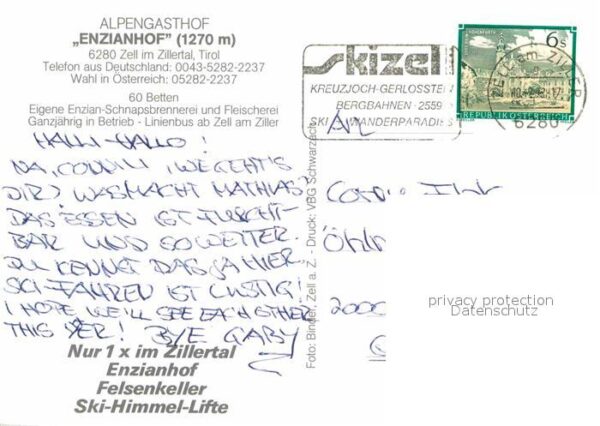 ALPENGASTHOF
„ENZIANHOF" (1270 m)
6280 Zell im Zillertal, Tirol
Telefon aus Deutschland: 0043-5282-2237
Wahl in Österreich: 05282-2237
60 Betten
Eigene Enzian-Schnapsbrennerei und Fleischerei
Ganzjährig in Betrieb - Linienbus ab Zell am Ziller
HALLI-HALLO!
NA, WIE GEHT'S
DIR? WAS MACHT MATHIAS?
DAS ESSEN IST FURCHT-
BAR UND SO WETTER.
DU KENNST DAS JA HIER.
SKI-FAHREN IST LUSTIG!
I HOPE WE'LL SEE EACH OTHER
THIS YEAR! BYE GABY
Nur 1 x im Zillertal
Enzianhof
Felsenkeller
Ski-Himmel-Lifte
Foto: Binder, Zell a. Z. - Druck: VBG Schwarzach
skizell
KREUZJOCH-GERLOSSTEIN
BERGBAHNEN 2559
SKI WANDERPARADIES
6 S
REPUBLIK ÖSTERREICH
6280
An
2000
privacy protection
Datenschutz